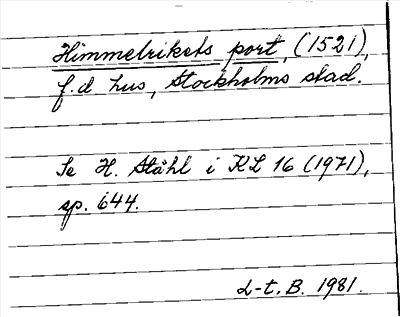 Himmelrikets port, (1521),
f.d hus, Stockholms stad.
Se H. Ståhl i KL 16 (1971),
sp. 644.
L-t. B. 1981.